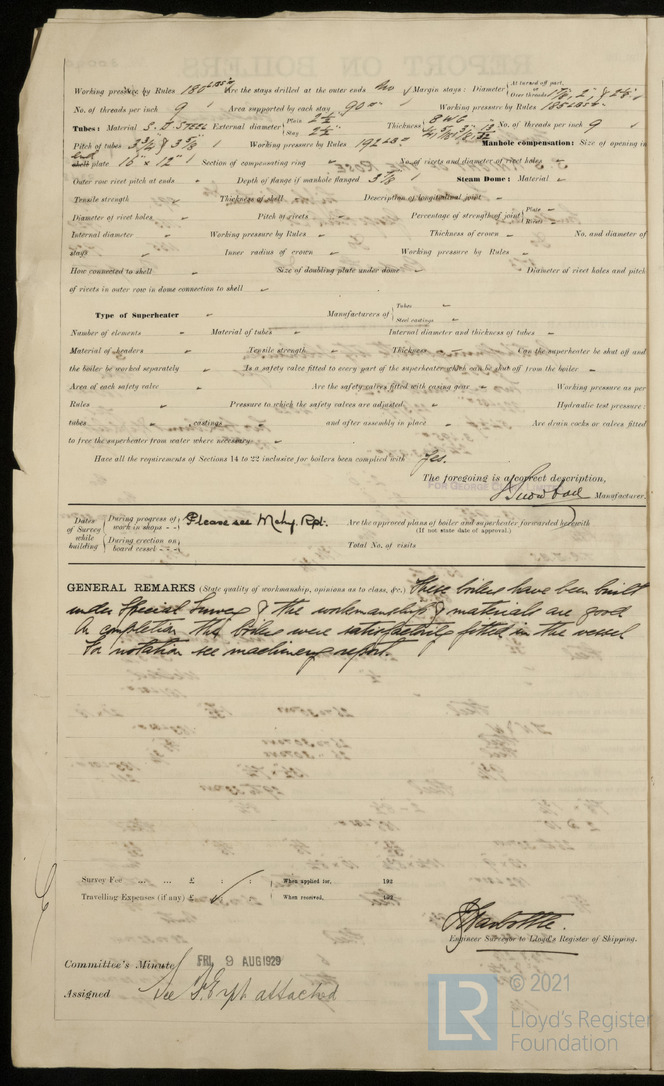 Working pressure by Rules 180 lbs Are the stays drilled at the outer ends No Margin stays: Diameter { At turned off part, or Over threads 1 7/8", 2" & 2 1/8"
No. of threads per inch 9 Area supported by each stay 90 Working pressure by Rules 185 lbs
Tubes: Material S. D. STEEL External diameter { Plain 2 1/2" Stay 2 1/2" Thickness { 8 WG No. of threads per inch 9
Pitch of tubes 3 3/4" & 3 5/8" Working pressure by Rules 192 lbs Manhole compensation: Size of opening in
end shell plate 16" x 12" Section of compensating ring - No. of rivets and diameter of rivet holes -
Outer row rivet pitch at ends - Depth of flange if manhole flanged 3 7/8" Steam Dome: Material -
Tensile strength Thickness of shell Description of longitudinal joint
Diameter of rivet holes - Pitch of rivets - Percentage of strength of joint { Plate - Rivets -
Internal diameter - Working pressure by Rules - Thickness of crown - No. and diameter of
stays - Inner radius of crown - Working pressure by Rules -
How connected to shell - Size of doubling plate under dome - Diameter of rivet holes and pitch
of rivets in outer row in dome connection to shell -
Type of Superheater - Manufacturers of { Tubes - Steel castings -
Number of elements - Material of tubes - Internal diameter and thickness of tubes -
Material of headers - Tensile strength - Thickness - Can the superheater be shut off and
the boiler be worked separately - Is a safety valve fitted to every part of the superheater which can be shut off from the boiler -
Area of each safety valve - Are the safety valves fitted with easing gear - Working pressure as per
Rules - Pressure to which the safety valves are adjusted - Hydraulic test pressure:
tubes - castings - and after assembly in place - Are drain cocks or valves fitted
to free the superheater from water where necessary -
Have all the requirements of Sections 14 to 22 inclusive for boilers been complied with Yes.
The foregoing is a correct description,
FOR GEORGE CLARK LIMITED
Manufacturer.
Dates of Survey while building { During progress of work in shops - - Please see Mchy. Rpt. Are the approved plans of boiler and superheater forwarded herewith
(If not state date of approval.)
During erection on board vessel - - - Total No. of visits
GENERAL REMARKS (State quality of workmanship, opinions as to class, &c.) These boilers have been built
under Special Survey & the workmanship & materials are good
On completion the boilers were satisfactorily fitted in the vessel
For notation see machinery report.
Survey Fee ... ... £ : : When applied for, 192
Travelling Expenses (if any) £ : : When received, 192
Engineer Surveyor to Lloyd's Register of Shipping.
Committee's Minute FRI. 9 AUG 1929
Assigned See F.E. rpt attached
© 2021
Lloyd's Register
Foundation
LR